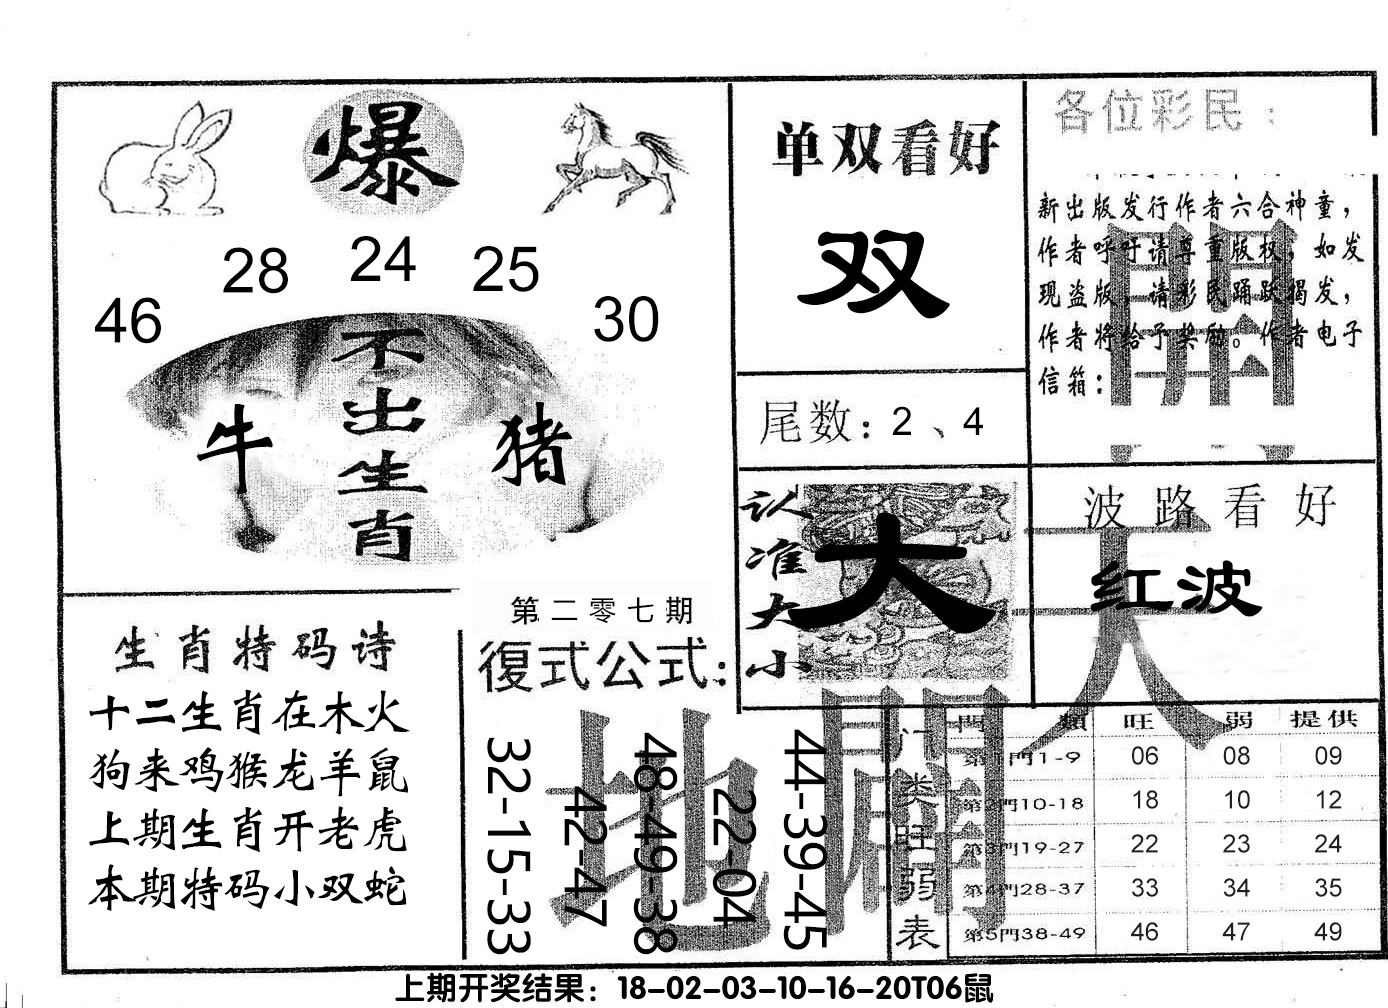 爆
28 24 25
46 30
不出生肖
牛
猪
单双看好
双
尾数：2、4
各位彩民：
新出版发行作者六合神童，
作者呼吁请尊重版权，如发
现盗版，请彩民踊跃揭发，
作者将给予奖励。作者电子
信箱：
認准大小
大
波路看好
红波
天
開
地
闢
生肖特码诗
十二生肖在木火
狗来鸡猴龙羊鼠
上期生肖开老虎
本期特码小双蛇
第二零七期
復式公式：
32-15-33
42-47
48-49-38
22-04
44-39-45
门类旺弱表
門類 旺 弱 提供
第1門1-9 06 08 09
第2門10-18 18 10 12
第3門19-27 22 23 24
第4門28-37 33 34 35
第5門38-49 46 47 49
上期开奖结果：18-02-03-10-16-20T06鼠